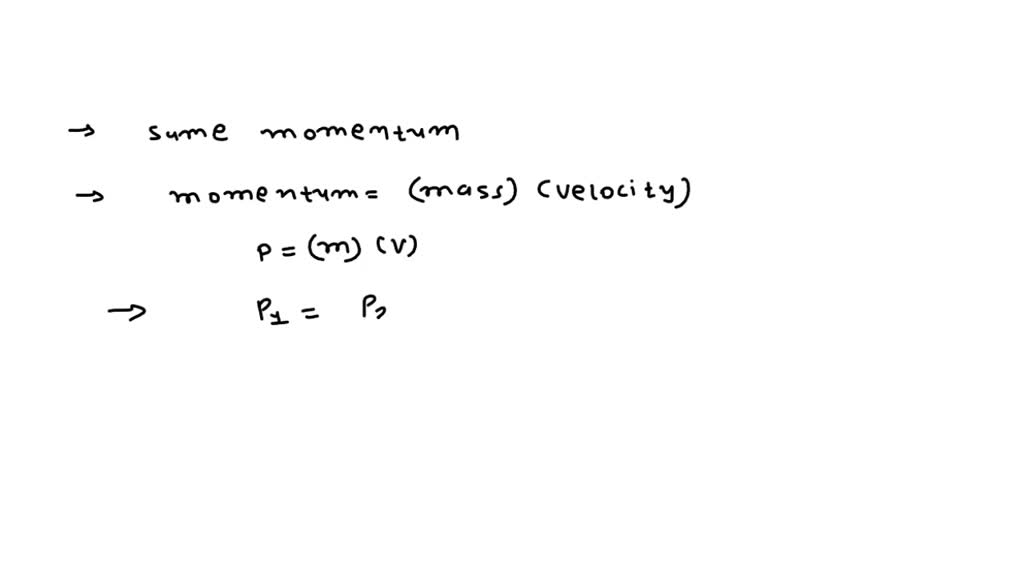 → sume momentum
→ momentum = (mass) (velocity)
P = (m) (v)
→ P1 = P2